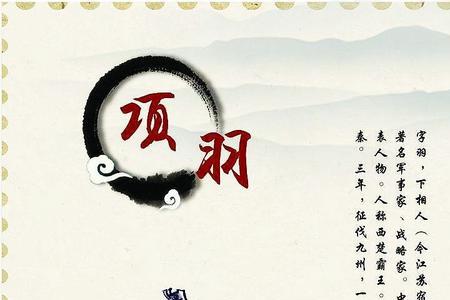 项羽
字羽，下相人（今江苏
著名军事家、战略家。中
表人物。人称西楚霸王。
秦。三年，征伐九州，一